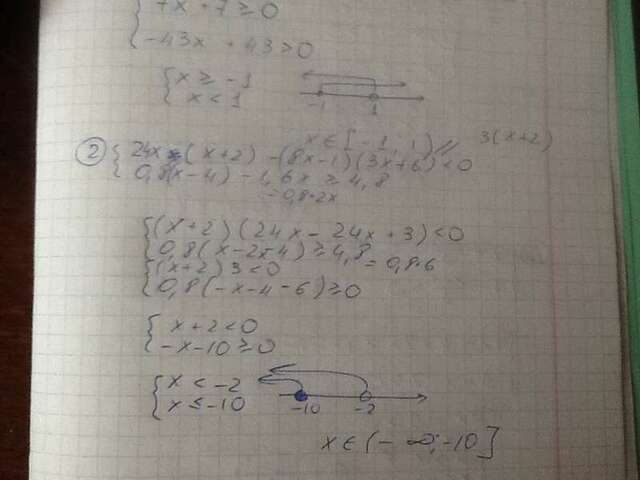 7x + 7 ≥ 0
-43x + 43 > 0
x ≥ -1
x < 1
-1 1
x ∈ [-1; 1)
② 24x (x+2) - (8x-1)(3x+6) < 0
3(x+2)
0,8(x-4) - 1,6x ≥ 4,8
-0,8·2x
(x+2)(24x - 24x + 3) < 0
0,8(x-2x-4) ≥ 4,8
= 0,8·6
(x+2) 3 < 0
0,8(-x-4-6) ≥ 0
x + 2 < 0
-x - 10 ≥ 0
x < -2
x ≤ -10
-10 -2
x ∈ (-∞; -10]